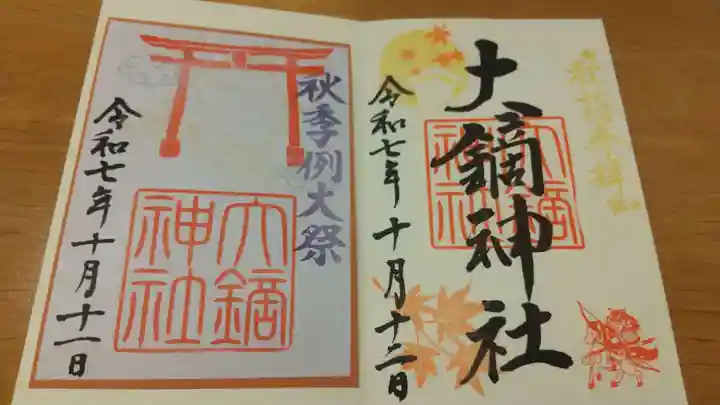 大鏑神社
令和七年十月十二日
大鏑
神社
秋季例大祭
令和七年十月十一日
大鏑
神社